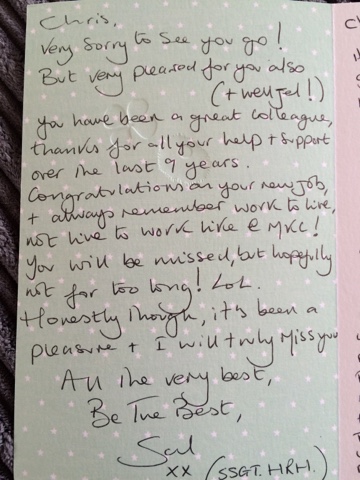 Chris,
Very sorry to see you go!
But very pleased for you also
(+ well jel!)
You have been a great colleague,
thanks for all your help + support
over the last 9 years.
Congratulations on your new job,
+ always remember work to live,
not live to work like @ MKC!
You will be missed, but hopefully
not for too long! LOL.
Honestly though, it's been a
pleasure + I will truly miss you
All the very best,
Be The Best,
Sal
xx (SSGT. HRH.)